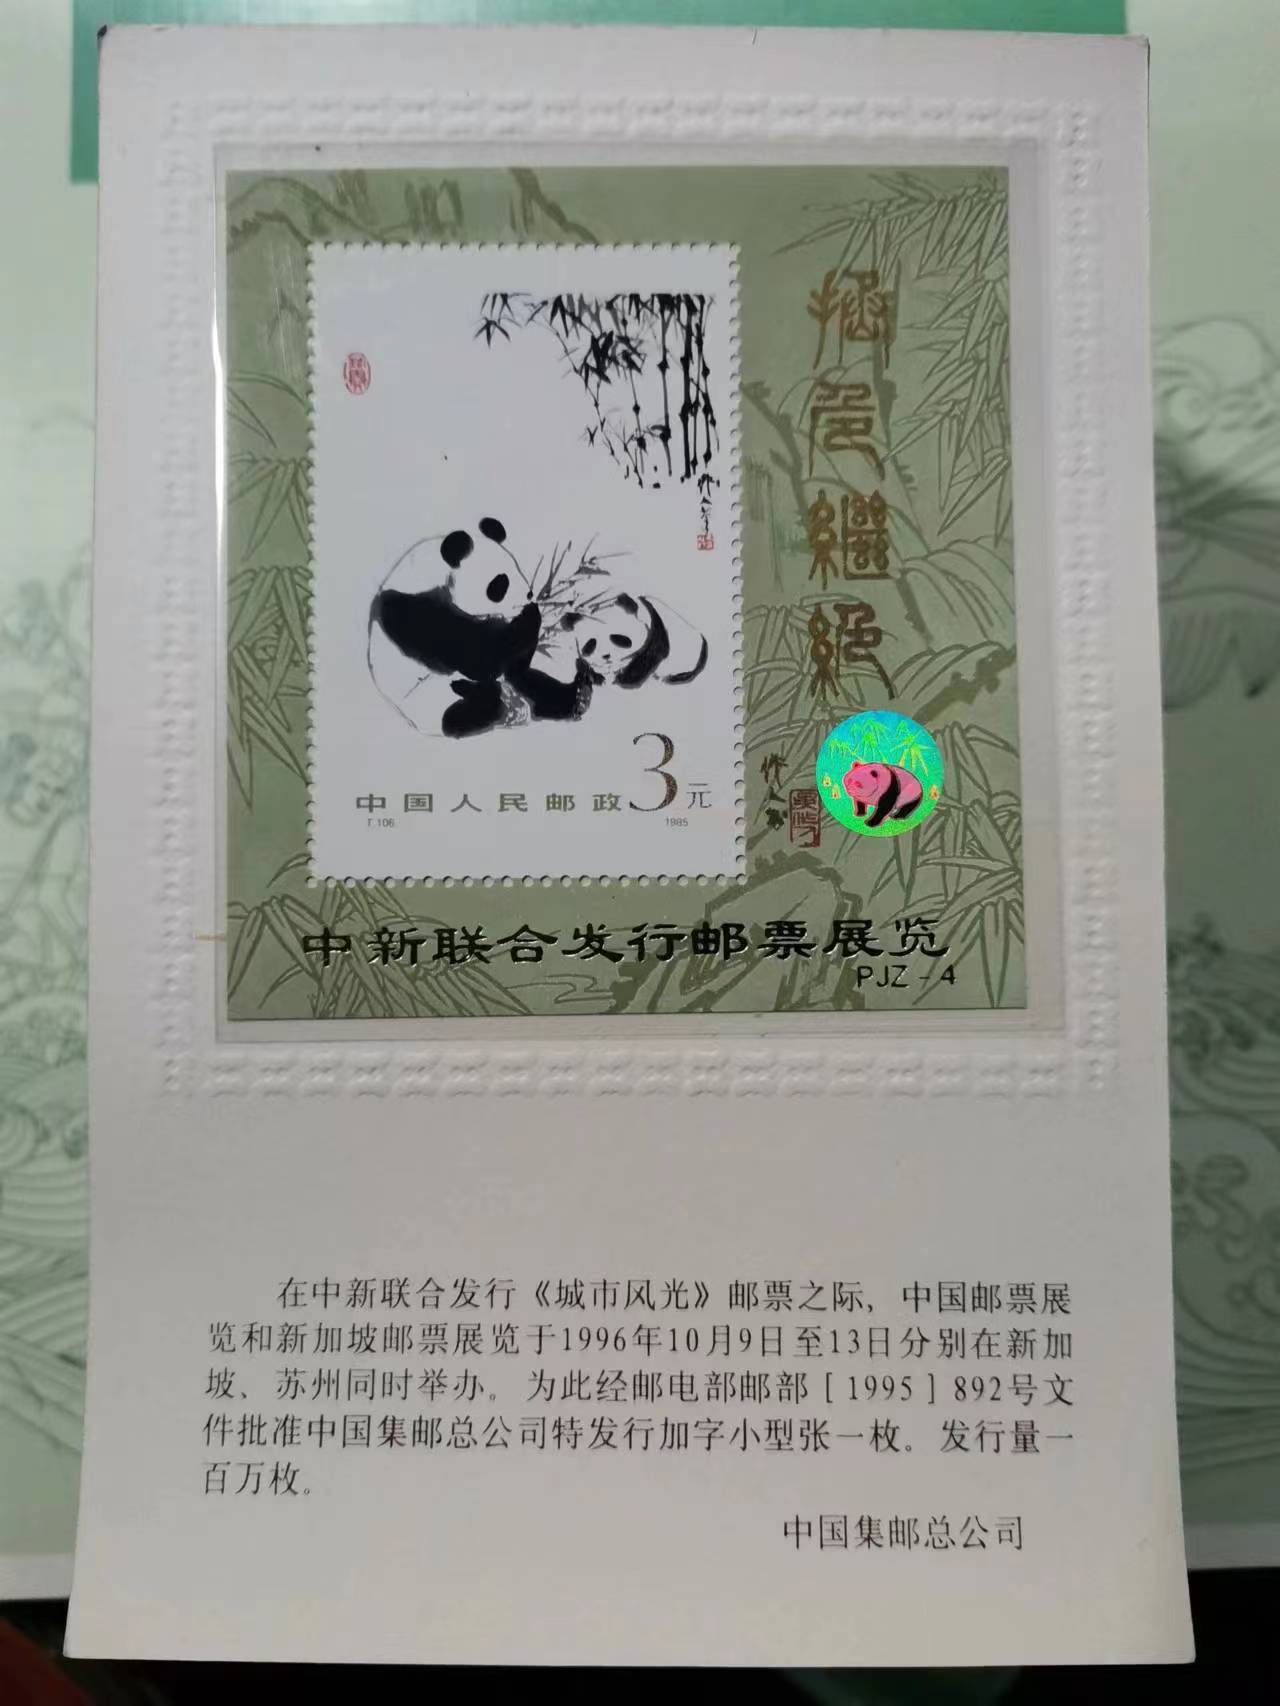 拯危继绝
作人
中国人民邮政 3元
T.106. 1985
中新联合发行邮票展览
PJZ-4
在中新联合发行《城市风光》邮票之际，中国邮票展
览和新加坡邮票展览于1996年10月9日至13日分别在新加
坡、苏州同时举办。为此经邮电部邮部[1995]892号文
件批准中国集邮总公司特发行加字小型张一枚。发行量一
百万枚。
中国集邮总公司